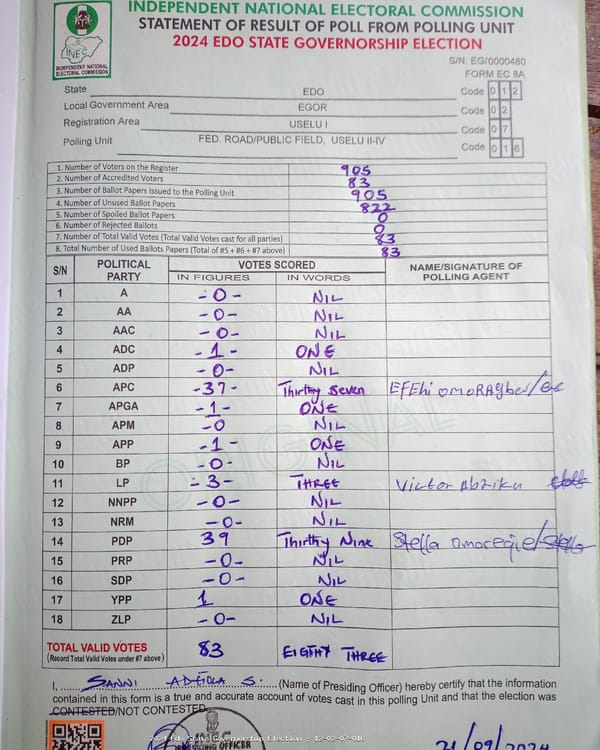 INDEPENDENT NATIONAL ELECTORAL COMMISSION
STATEMENT OF RESULT OF POLL FROM POLLING UNIT
2024 EDO STATE GOVERNORSHIP ELECTION
INEC
INDEPENDENT NATIONAL
ELECTORAL COMMISSION
S/N: EG/0000480
FORM EC 8A
State EDO Code 0 1 2
Local Government Area EGOR Code 0 2
Registration Area USELU I Code 0 7
Polling Unit FED. ROAD/PUBLIC FIELD, USELU II-IV Code 0 1 6
1. Number of Voters on the Register 905
2. Number of Accredited Voters 83
3. Number of Ballot Papers Issued to the Polling Unit 905
4. Number of Unused Ballot Papers 822
5. Number of Spoiled Ballot Papers 0
6. Number of Rejected Ballots 0
7. Number of Total Valid Votes (Total Valid Votes cast for all parties) 83
8. Total Number of Used Ballots Papers (Total of #5 + #6 + #7 above) 83
S/N POLITICAL PARTY VOTES SCORED NAME/SIGNATURE OF POLLING AGENT
IN FIGURES IN WORDS
1 A -0- NIL
2 AA -0- NIL
3 AAC -0- NIL
4 ADC -1- ONE
5 ADP -0- NIL
6 APC -37- Thirthy Seven EFEhi
7 APGA -1- ONE
8 APM -0 NIL
9 APP -1- ONE
10 BP -0- NIL
11 LP -3- THREE Victor
12 NNPP -0- NIL
13 NRM -0- NIL
14 PDP 39 Thirthy Nine Stella omoregie/
15 PRP -0- NIL
16 SDP -0- NIL
17 YPP 1 ONE
18 ZLP -0- NIL
TOTAL VALID VOTES 83 EIGHTY THREE
(Record Total Valid Votes under #7 above)
I, SANNI ADEIOLA S. (Name of Presiding Officer) hereby certify that the information
contained in this form is a true and accurate account of votes cast in this polling Unit and that the election was
CONTESTED/NOT CONTESTED
2024 Edo State Governorship Election : 12-02-07-016
PRESIDING OFFICER
21/09/2024